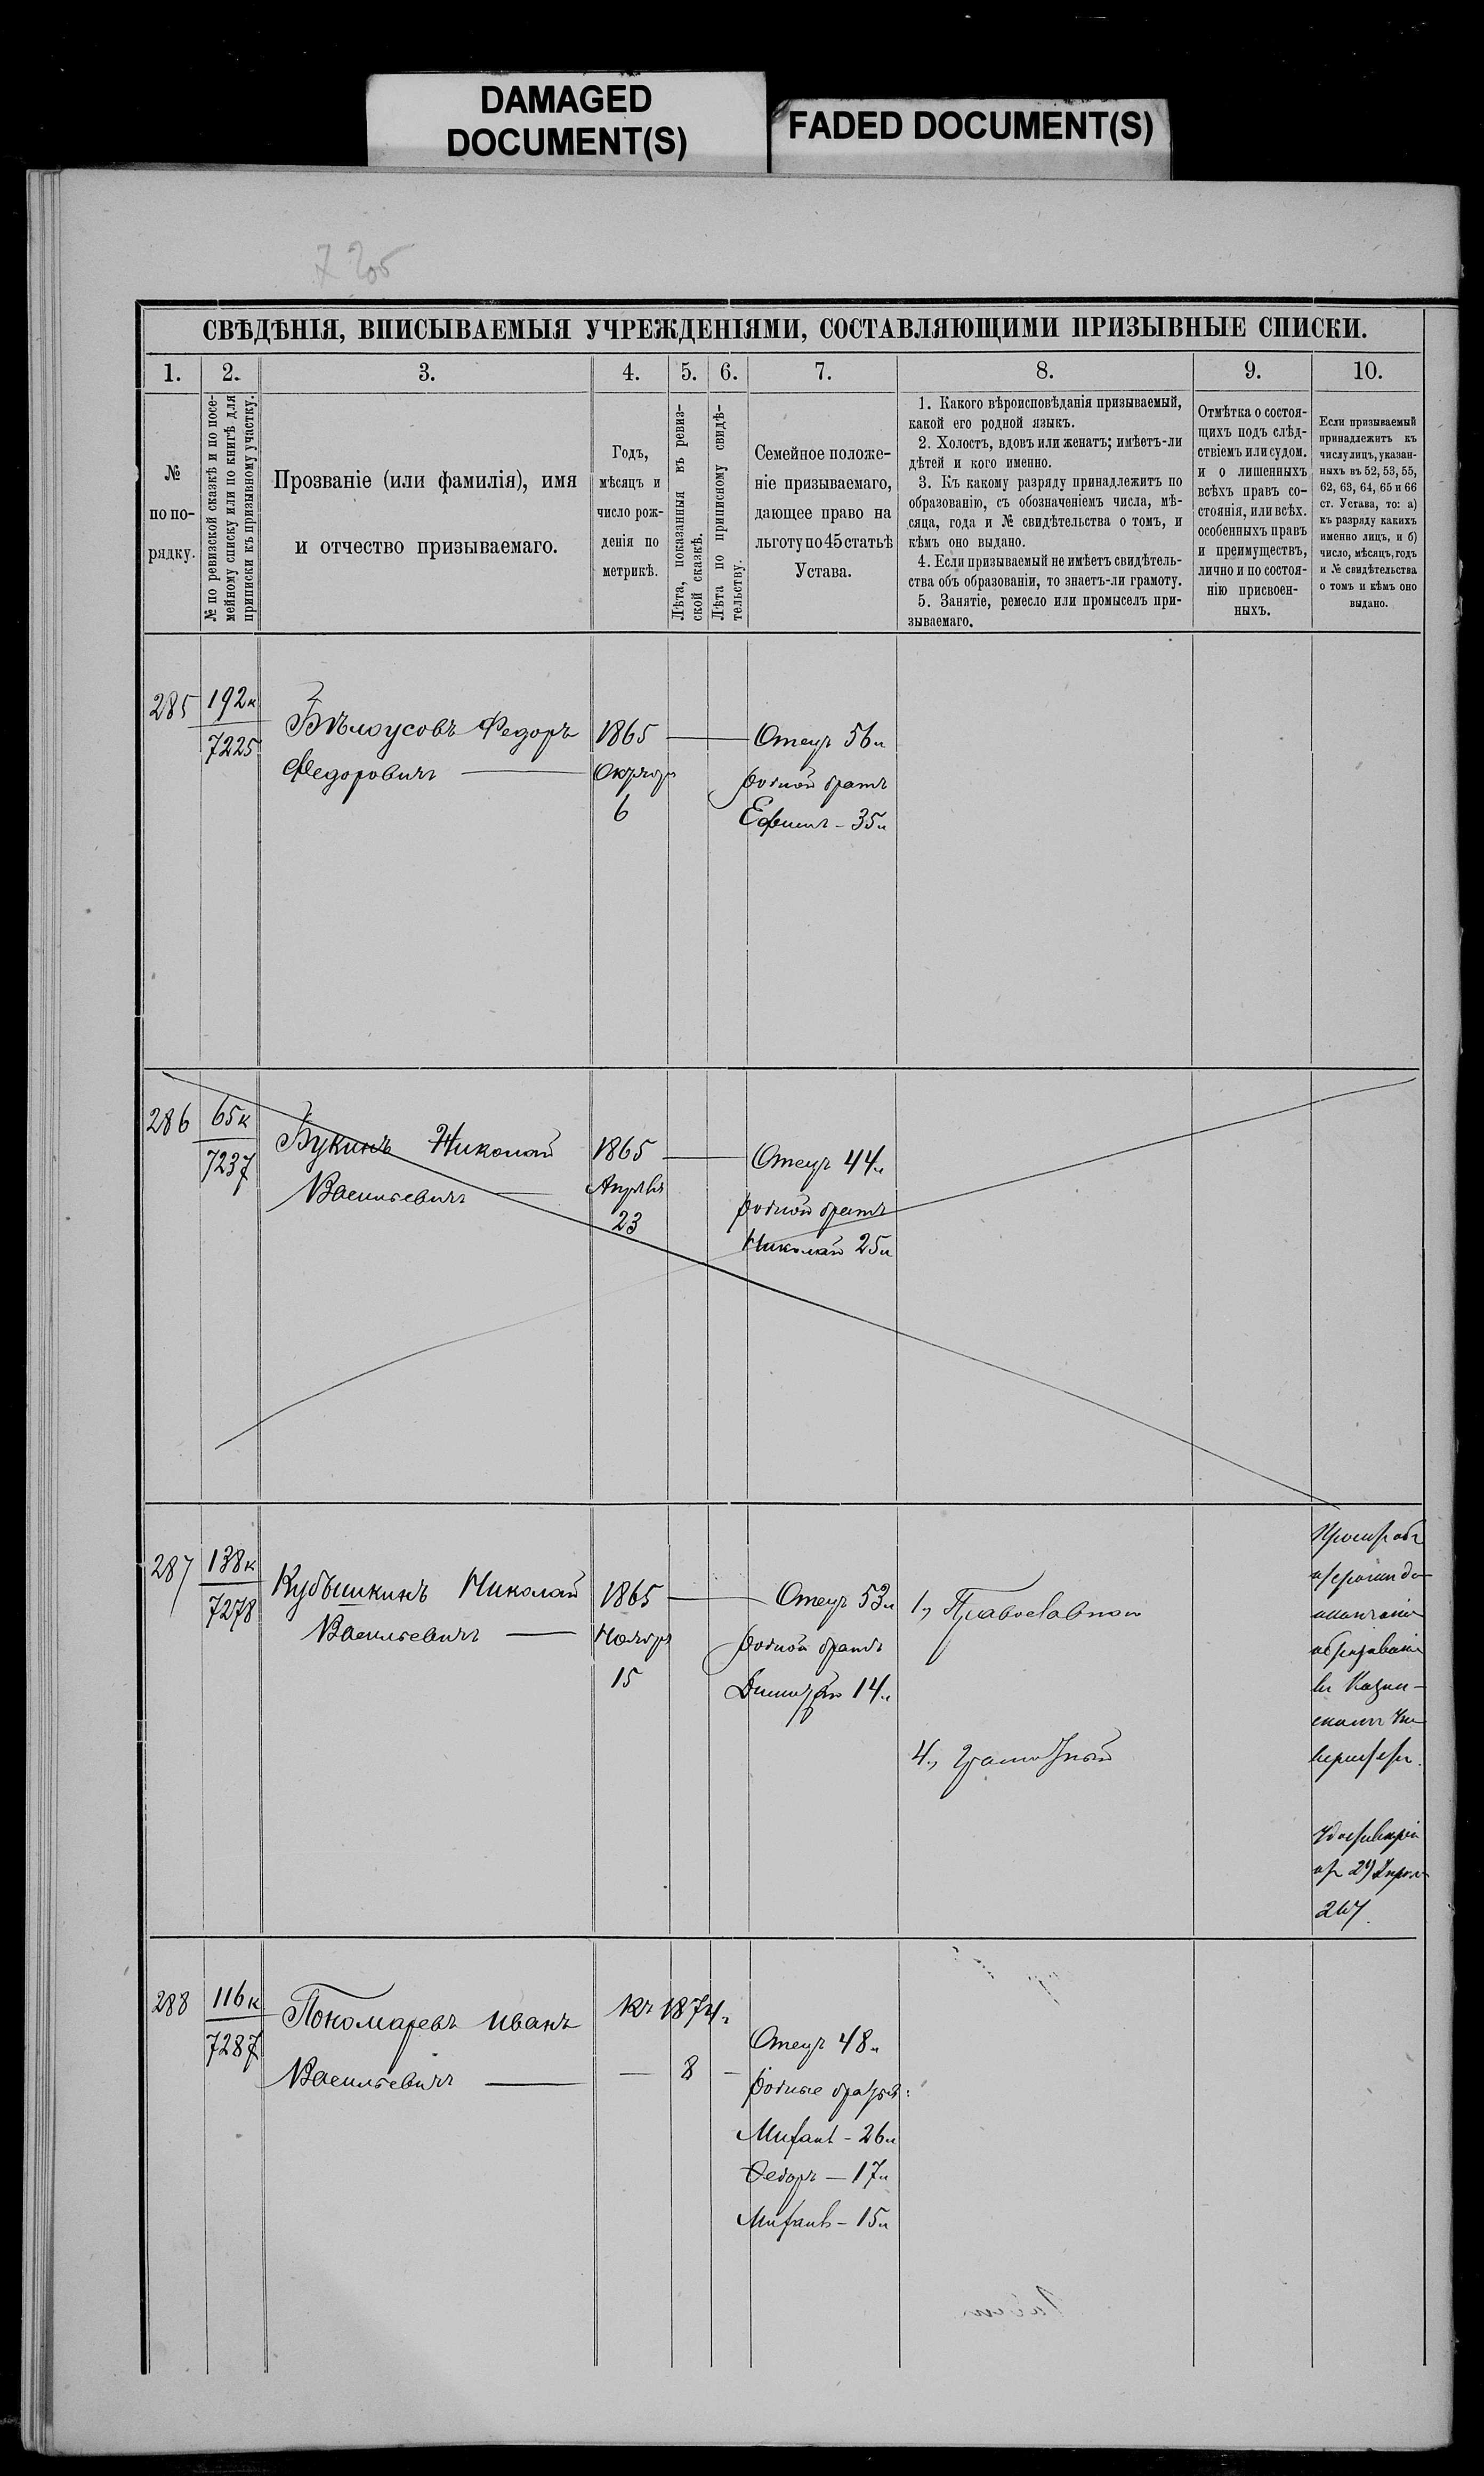 DAMAGED
DOCUMENT(S)
FADED DOCUMENT(S)
СВѢДѢНІЯ, ВПИСЫВАЕМЫЯ УЧРЕЖДЕНІЯМИ, СОСТАВЛЯЮЩИМИ ПРИЗЫВНЫЕ СПИСКИ.
1.
2.
3.
4.
5.
6.
7.
8.
9.
10.
№
по по-
рядку.
№ по ревизской сказкѣ и по посе-
мейному списку или по книгѣ для
приписки къ призывному участку.
Прозваніе (или фамилія), имя
и отчество призываемаго.
Годъ,
мѣсяцъ и
число рож-
денія по
метрикѣ.
Лѣта, показанныя въ ревиз-
ской сказкѣ.
Лѣта по приписному свидѣ-
тельству.
Семейное положе-
ніе призываемаго,
дающее право на
льготу по 45 статьѣ
Устава.
1. Какого вѣроисповѣданія призываемый,
какой его родной языкъ.
2. Холостъ, вдовъ или женатъ; имѣетъ-ли
дѣтей и кого именно.
3. Къ какому разряду принадлежитъ по
образованію, съ обозначеніемъ числа, мѣ-
сяца, года и № свидѣтельства о томъ, и
кѣмъ оно выдано.
4. Если призываемый не имѣетъ свидѣтель-
ства объ образованіи, то знаетъ-ли грамоту.
5. Занятіе, ремесло или промыселъ при-
зываемаго.
Отмѣтка о состоя-
щихъ подъ слѣд-
ствіемъ или судом.
и о лишенныхъ
всѣхъ правъ со-
стоянія, или всѣх.
особенныхъ правъ
и преимуществъ,
лично и по состоя-
нію присвоен-
ныхъ.
Если призываемый
принадлежитъ къ
числу лицъ, указан-
ныхъ въ 52, 53, 55,
62, 63, 64, 65 и 66
ст. Устава, то: а)
къ разряду какихъ
именно лицъ, и б)
число, мѣсяцъ, годъ
и № свидѣтельства
о томъ и кѣмъ оно
выдано.
285
192к
7225
Бѣлоусовъ Федоръ
Федоровичъ
1865
Октяб
6
Отецъ 56 л
родной братъ
Ефимъ - 35 л
286
65к
7237
Букинъ Николай
Васильевичъ
1865
Апрѣль
23
Отецъ 44 л
родной братъ
Николай 25 л
287
138к
7278
Кубышкинъ Николай
Васильевичъ
1865
Ноябр
15
Отецъ 53 л
родной братъ
Дмитрій 14 л
1, Православной
4, грамотный
образованія
въ Казан-
скомъ Уни
верситетѣ
267
288
116к
7287
Пономаревъ Иванъ
Васильевичъ
Къ 1874 г
8
Отецъ 48 л
родные братья:
Михаилъ - 26 л
Федоръ - 17 л
Михаилъ - 15 л